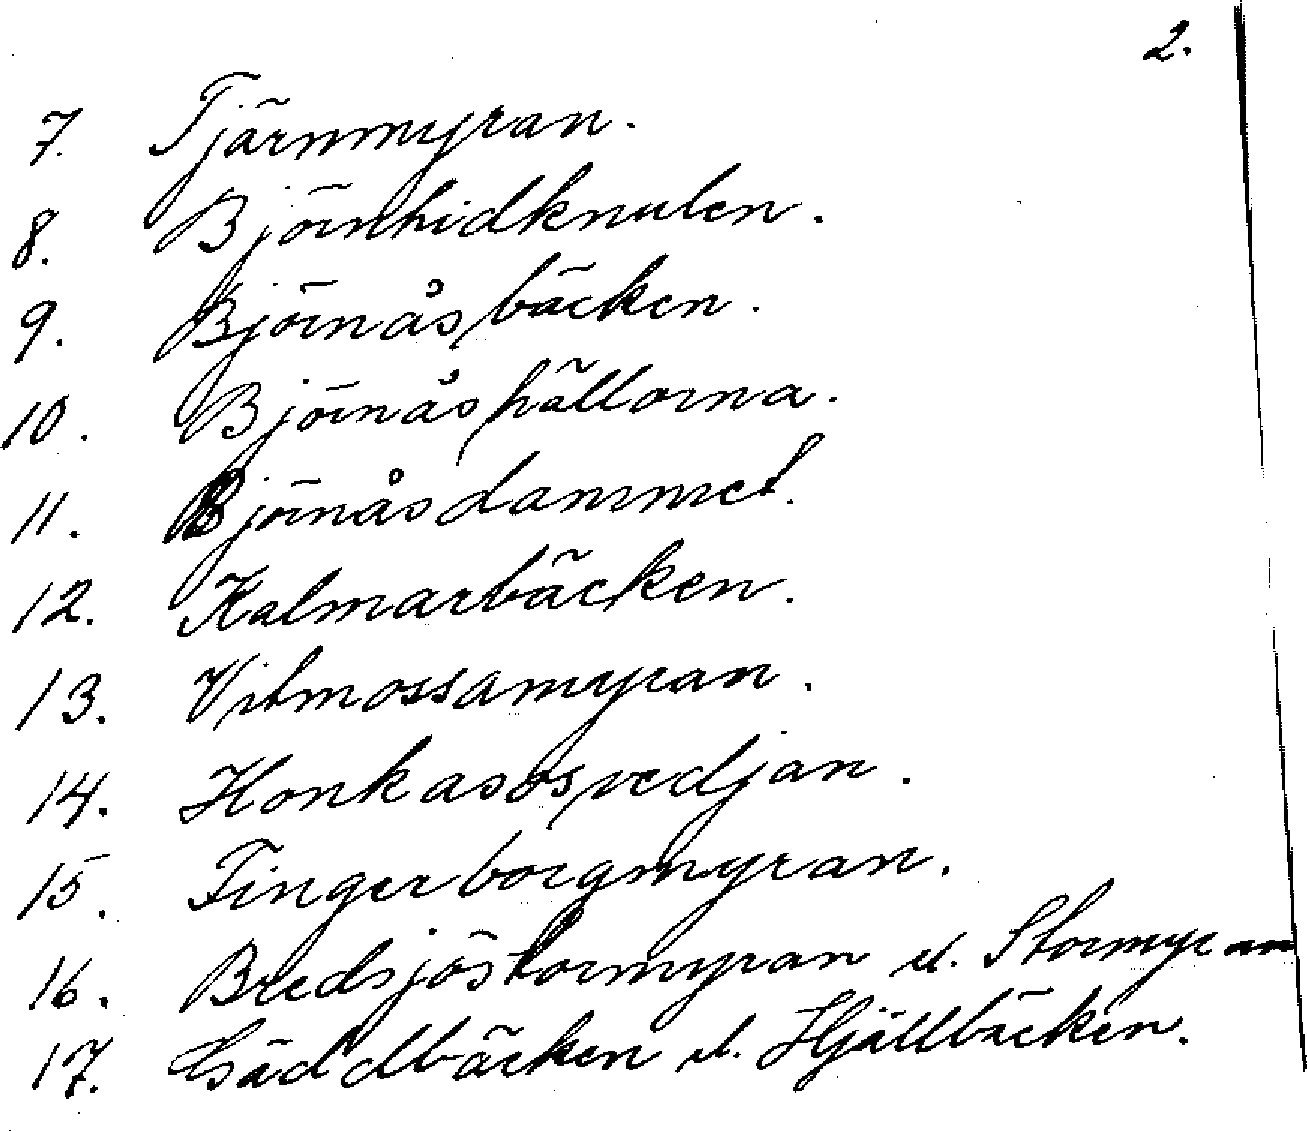 2.
7. Tjärnmyran.
8. Björnhidknulen.
9. Björnåsbäcken.
10. Björnåshällorna.
11. Björnåsdammet.
12. Kalmarbäcken.
13. Vitmossamyran.
14. Honkasosvedjan.
15. Fingerborgmyran.
16. Bredsjöstormyran el. Stormyran
17. Gäddbäcken el. Hjällbäcken.